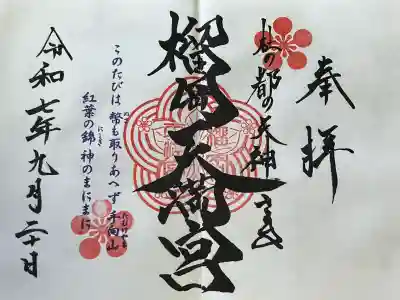 奉拝
杜の都の天神さま
榴岡天満宮
このたびは 幣も取りあへず 手向山
紅葉の錦 神のまにまに
令和七年九月二十日